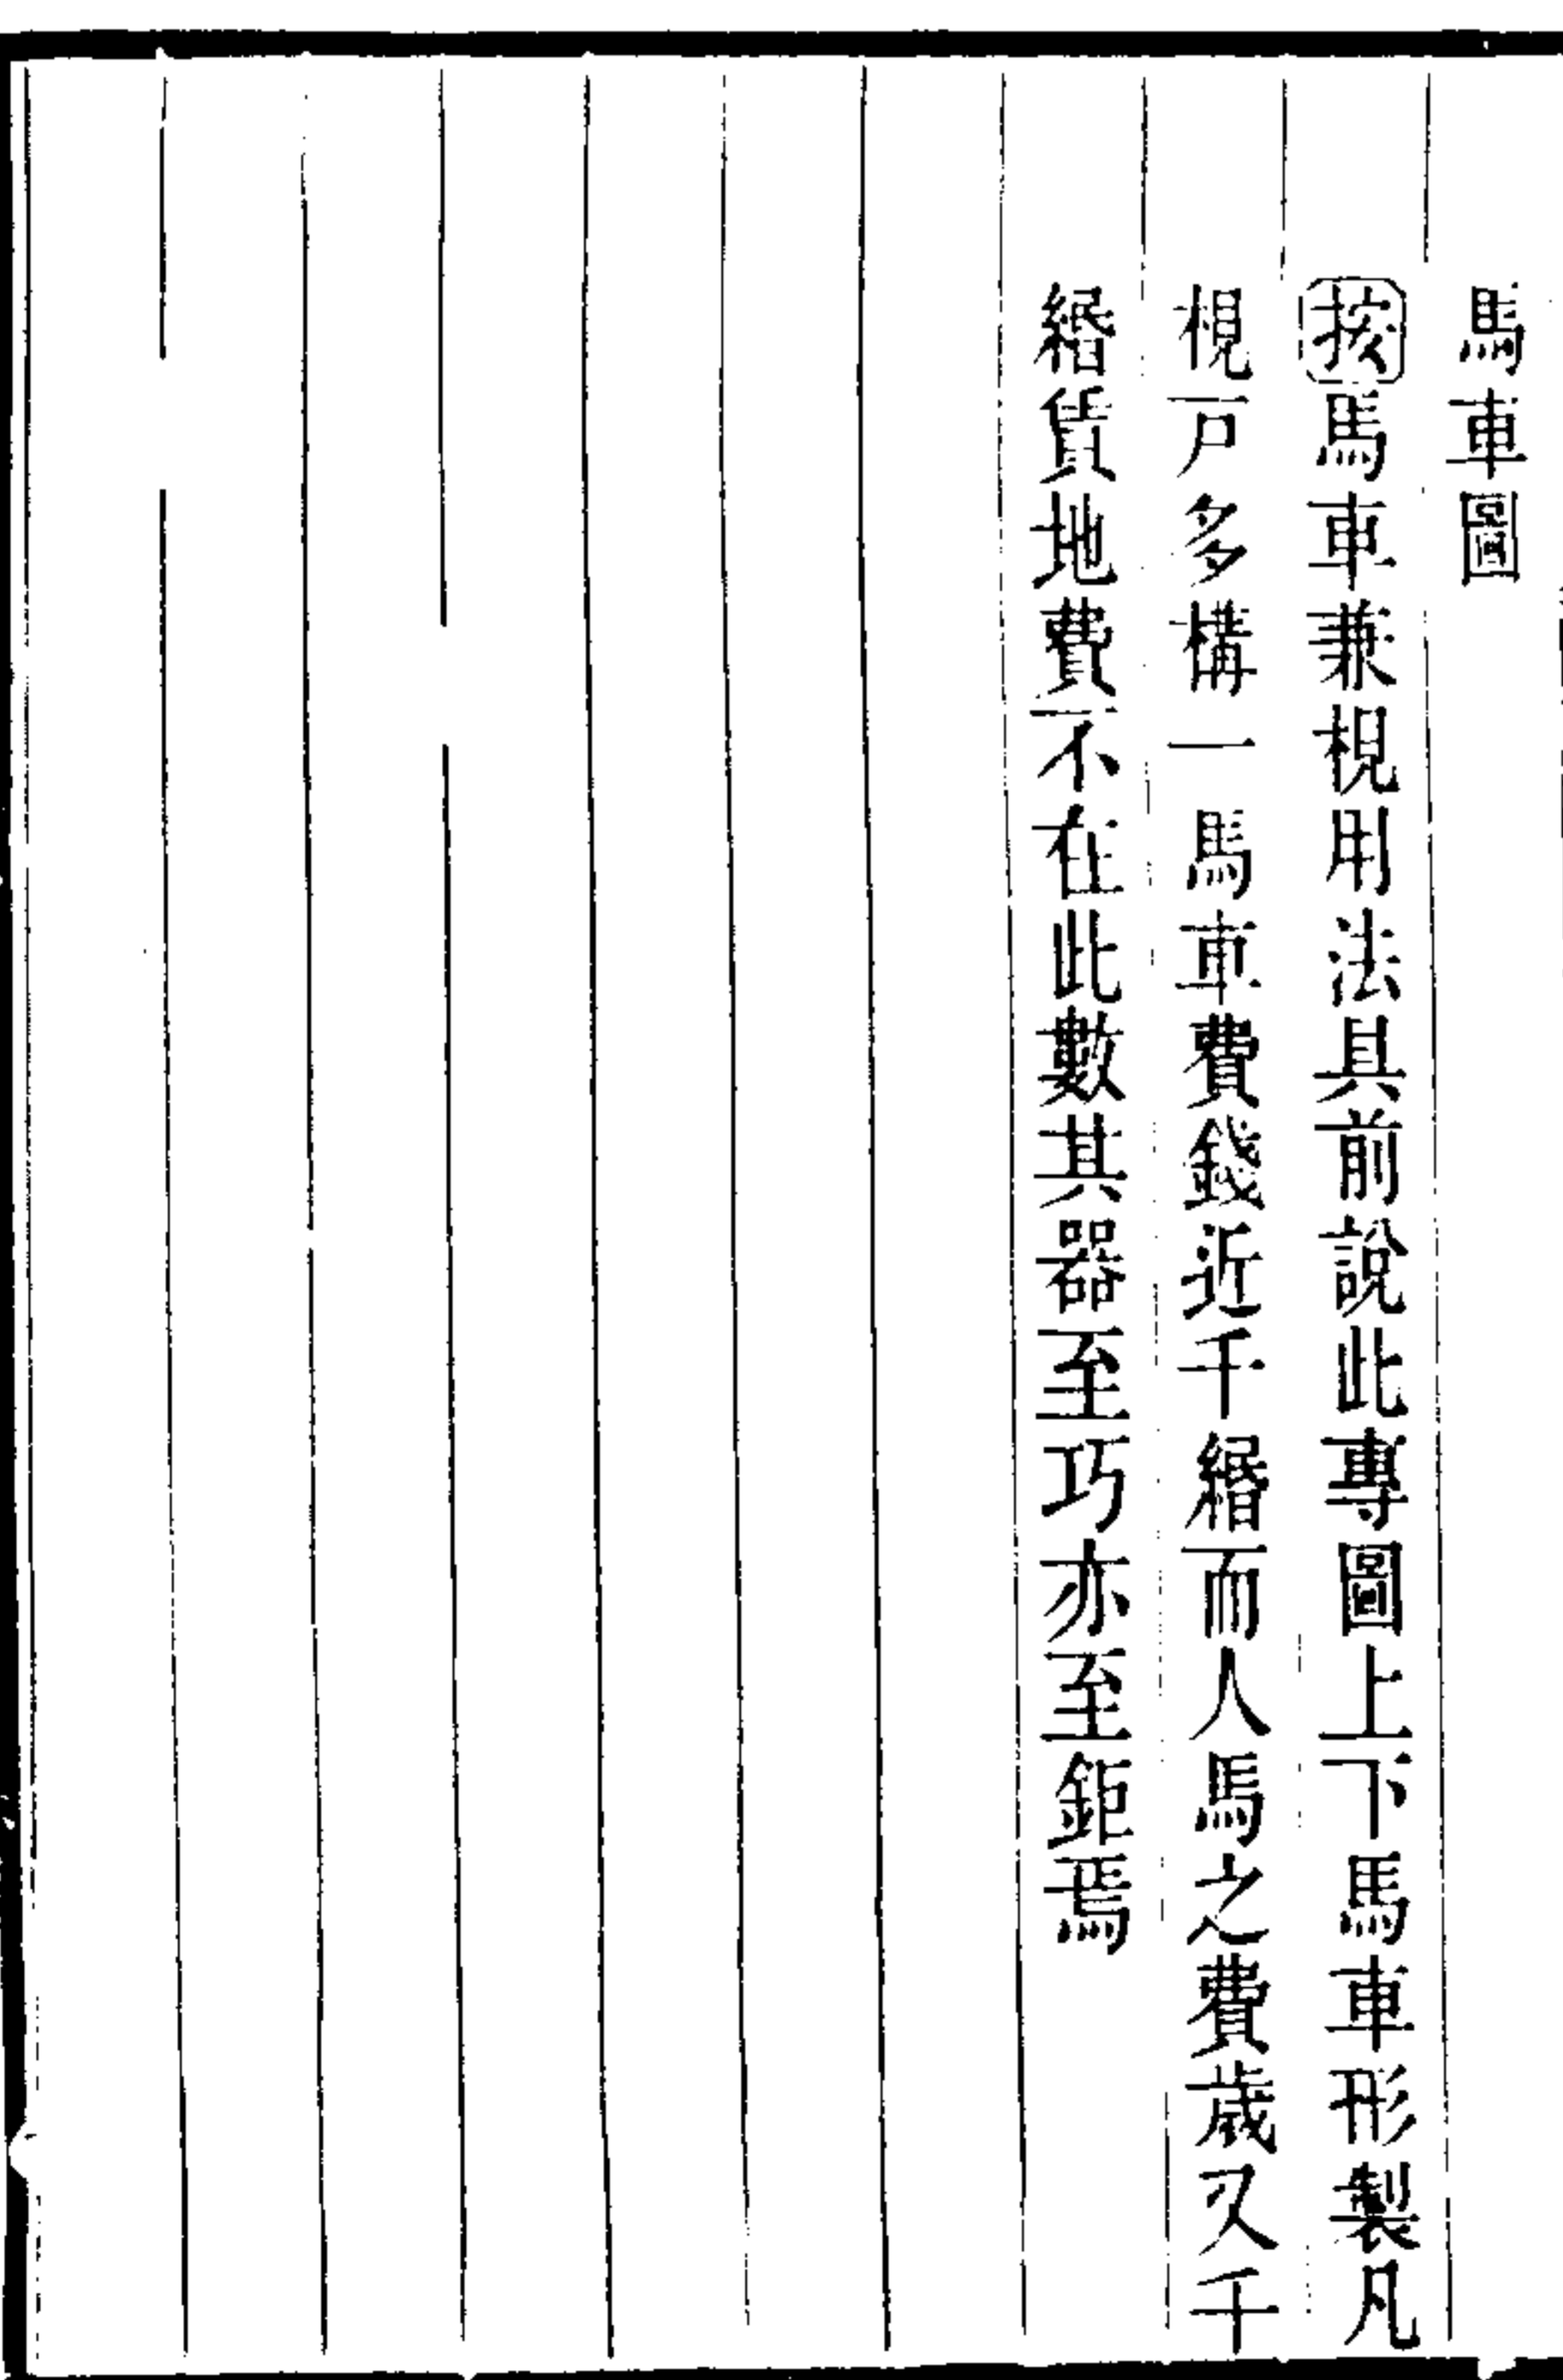 馬車圖
按馬車兼梘用法具前說此專圖上下馬車形製凡
梘戸多構一馬車費錢近千緡而人馬之費歲又千
緡賃地費不在此數其器至巧亦至鉅焉